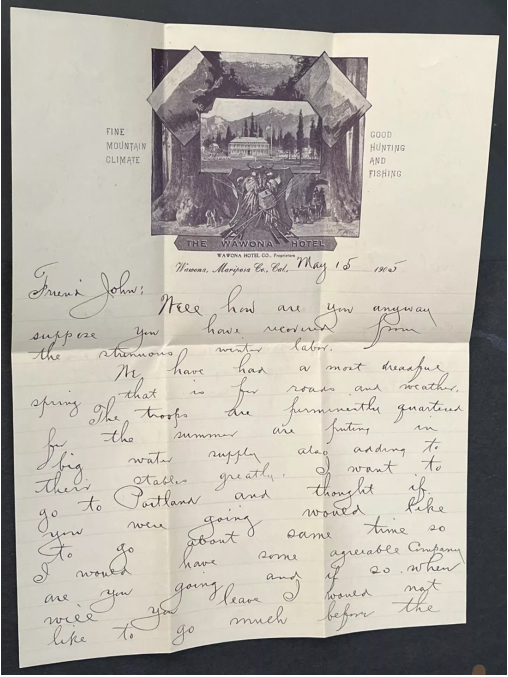 FINE
MOUNTAIN
CLIMATE
GOOD
HUNTING
AND
FISHING
THE WAWONA HOTEL
WAWONA HOTEL CO., Proprietors
Wawona, Mariposa Co., Cal., May 15 1905
Friend John:
Well how are you anyway
suppose you have recovered from
the strenuous winter labor.
We have had a most dreadful
spring that is for roads and weather.
The troops are perminently quartered
for the summer are puting in
big water supply also adding to
their stables greatly. I want to
go to Portland and thought if
you were going would like
to go about same time so
I would have some agreeable Company
are you going and if so when
will you leave I would not
like to go much before the